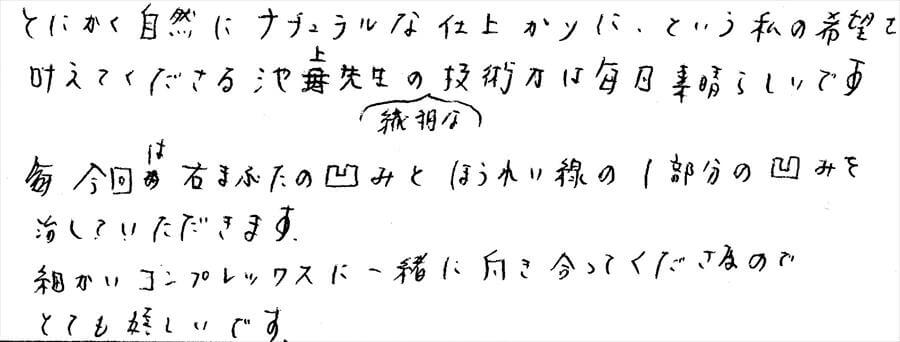 とにかく自然にナチュラルな仕上がりに、という私の希望を
叶えてくださる池上先生の技術力は毎回素晴らしいです
繊細な
今回は右まぶたの凹みとほうれい線の1部分の凹みを
治していただきます。
細かいコンプレックスに一緒に向き合ってくださるので
とても嬉しいです。